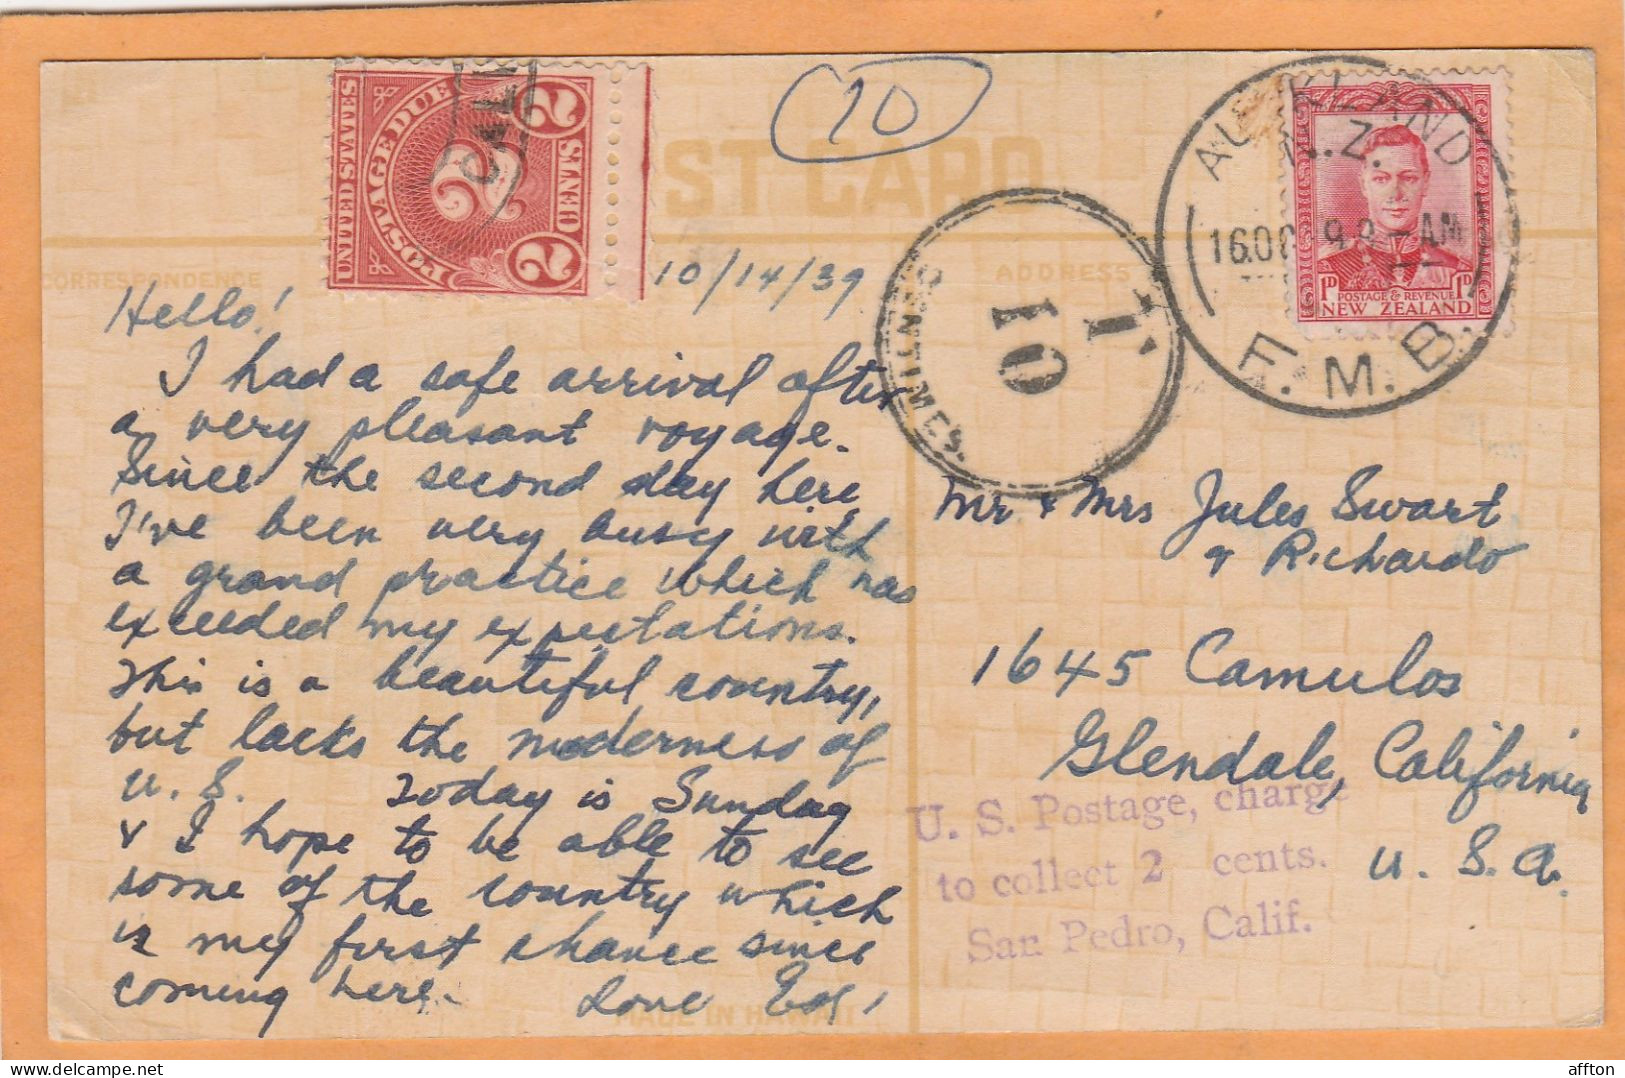 10
UNITED STATES
POSTAGE DUE
2 CENTS 2
2
CALIF
POST CARD
AUCKLAND
N.Z.
16 OC 39 9-AM
F.M.B.
1D POSTAGE & REVENUE 1D
NEW ZEALAND
T
10
CENTIMES.
CORRESPONDENCE
ADDRESS
10/14/39
Hello!
I had a safe arrival after
a very pleasant voyage.
Since the second day here
I've been very busy with
a grand practice which has
exceeded my expectations.
This is a beautiful country,
but lacks the moderness of
U.S. Today is Sunday
& I hope to be able to see
some of the country which
is my first chance since
coming here. Love
Mr & Mrs Jules Swart
& Richardo
1645 Camulos
Glendale, California
U.S.A.
U. S. Postage, charge
to collect 2 cents.
San Pedro, Calif.
MADE IN HAWAII
affton